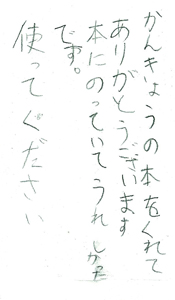 かんきょうの本をくれて
ありがとうございます
本にのっていてうれしかった
です。
使ってぐださい